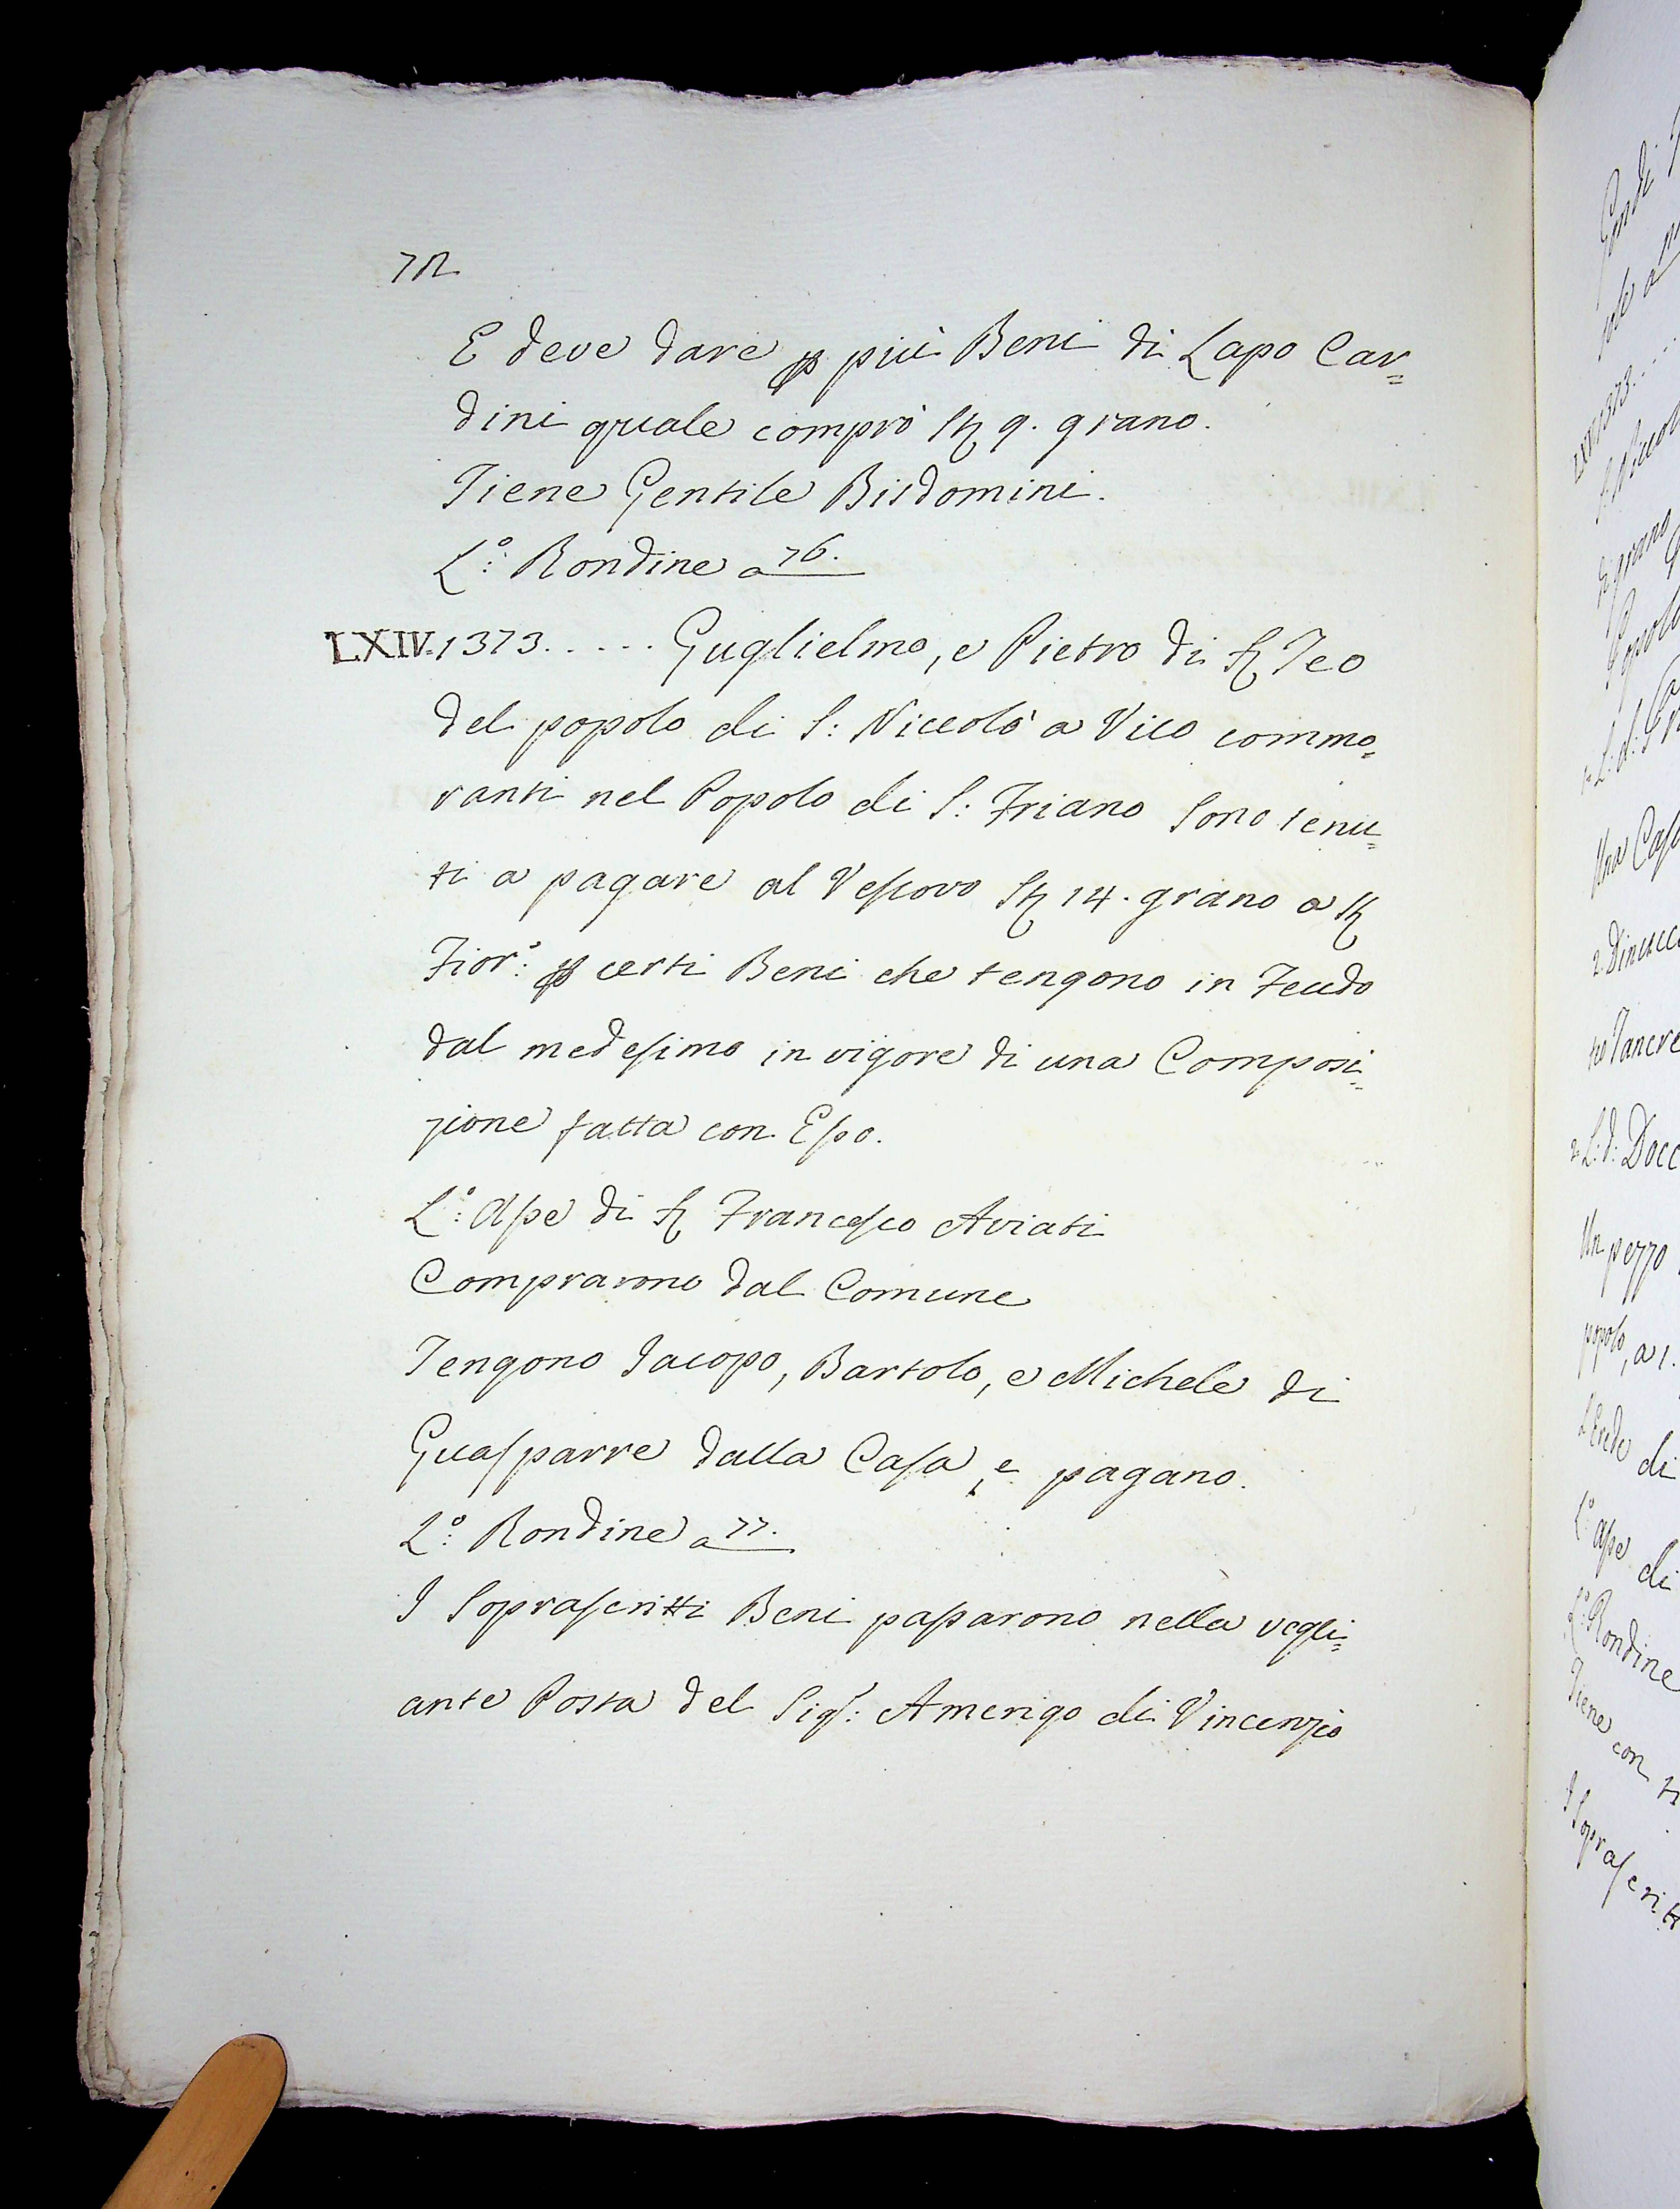 72
E deve dare p più Beni di Lapo Car=
dini quale comprò St 9. grano.
Tiene Gentile Bisdomini.
L:° Rondine a 76.
LXIV. 1373. . . . . Guglielmo, e Pietro di S Teo
del popolo di S: Niccolò a Vico commo=
ranti nel Popolo di S: Friano sono tenu=
ti a pagare al Vescovo St 14. grano a St
Fior:° p certi Beni che tengono in Feudo
dal medesimo in vigore di una Composi=
zione fatta con Esso.
L:° Ape di S Francesco Aviati
Comprarono dal Comune
Tengono Iacopo, Bartolo, e Michele di
Guasparre dalla Casa, e pagano.
L:° Rondine a 77.
I Soprascritti Beni passarono nella vegli=
ante Posta del Sig: Amerigo di Vincenzio
LXV 1373. . . .
di grano
Una Casa
Un pezzo
popolo, a 1.
di
L:° Ape di
L:° Rondine
Tiene con
I Soprascritt